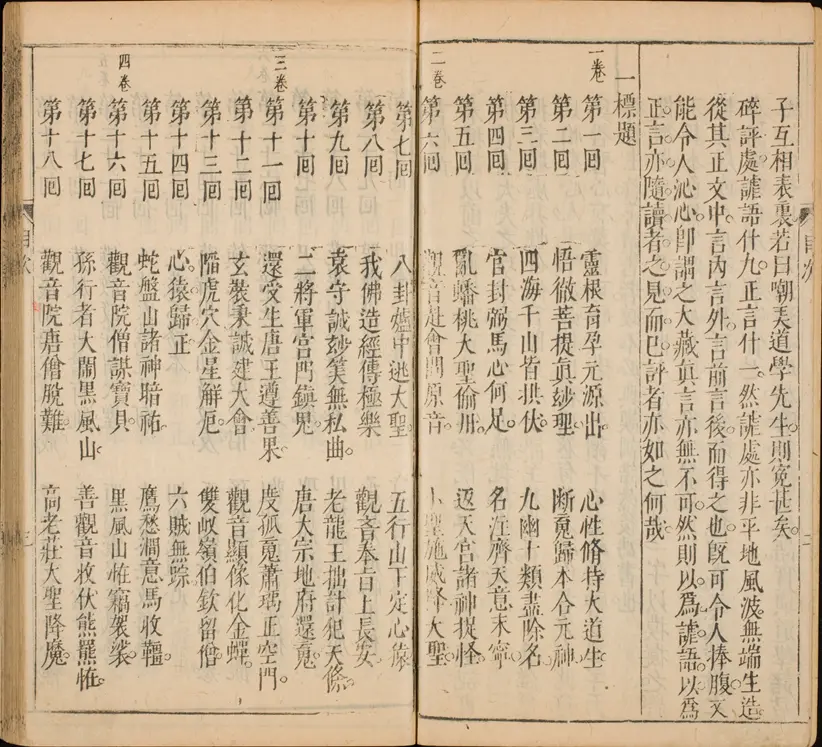 子互相表裏若曰嘲笑道學先生則寃甚矣。
碎評處謔語什九。正言什一。然謔處亦非平地風波。無端生造。
從其正文中言內言外。言前言後而得之也。旣可令人捧腹。又
能令人沁心。卽謂之大藏眞言亦無不可。然則以爲謔語。以爲
正言。亦隨讀者之見而已。評者亦如之何哉
一標題
一卷
第一回 靈根育孕元源出 心性脩持大道生
第二回 悟徹菩提眞妙理。 斷魔歸本合元神。
第三回 四海千山皆拱伏。 九幽十類盡除名
第四回 官封弼馬心何足。 名注齊天意未寧。
第五回 亂蟠桃大聖偷丹。 返天宮諸神捉怪。
二卷
第六回 觀音赴會問原音。 小聖施威降大聖
第七回 八卦爐中逃大聖 五行山下定心猿
第八回 我佛造經傳極樂 觀音奉旨上長安
第九回 袁守誠妙筭無私曲。 老龍王拙計犯天條。
第十回 二將軍宮門鎮鬼。 唐太宗地府還魂
三卷
第十一回 還受生唐王遵善果。 度孤魂蕭瑀正空門。
第十二回 玄奘秉誠建大會 觀音顯像化金蟬。
第十三回 陷虎穴金星解厄。 雙叉嶺伯欽留僧。
第十四回 心猿歸正 六賊無踪。
第十五回 蛇盤山諸神暗祐。 鷹愁澗意馬收韁。
四卷
第十六回 觀音院僧謀寶貝。 黑風山怪竊袈裟。
第十七回 孫行者大鬧黑風山 善觀音收伏熊羆怪。
第十八回 觀音院唐僧脫難。 高老莊大聖降魔。
目次 二
目次 三